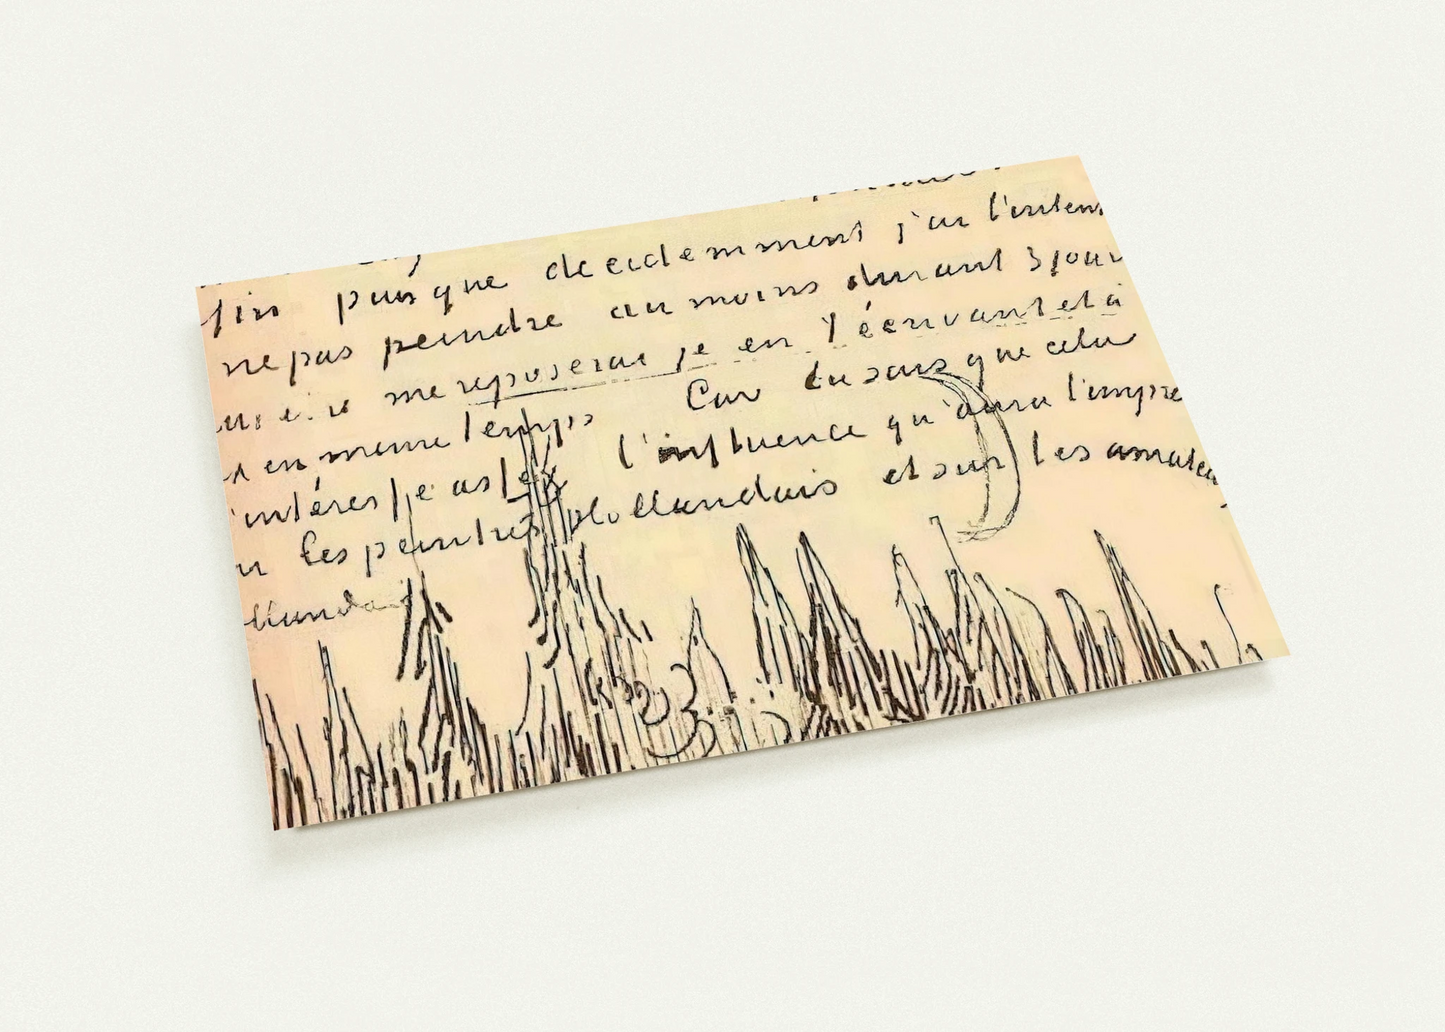 fin puisque decidemment j'ai l'inten
ne pas peindre au moins durant 3 jour
me reposerai je en t'écrivant et à
en meme temps Car tu sais que cela
intéresse asſez l'influence qu'aura l'impre
les peintres Hollandais et sur les amateu
llandais